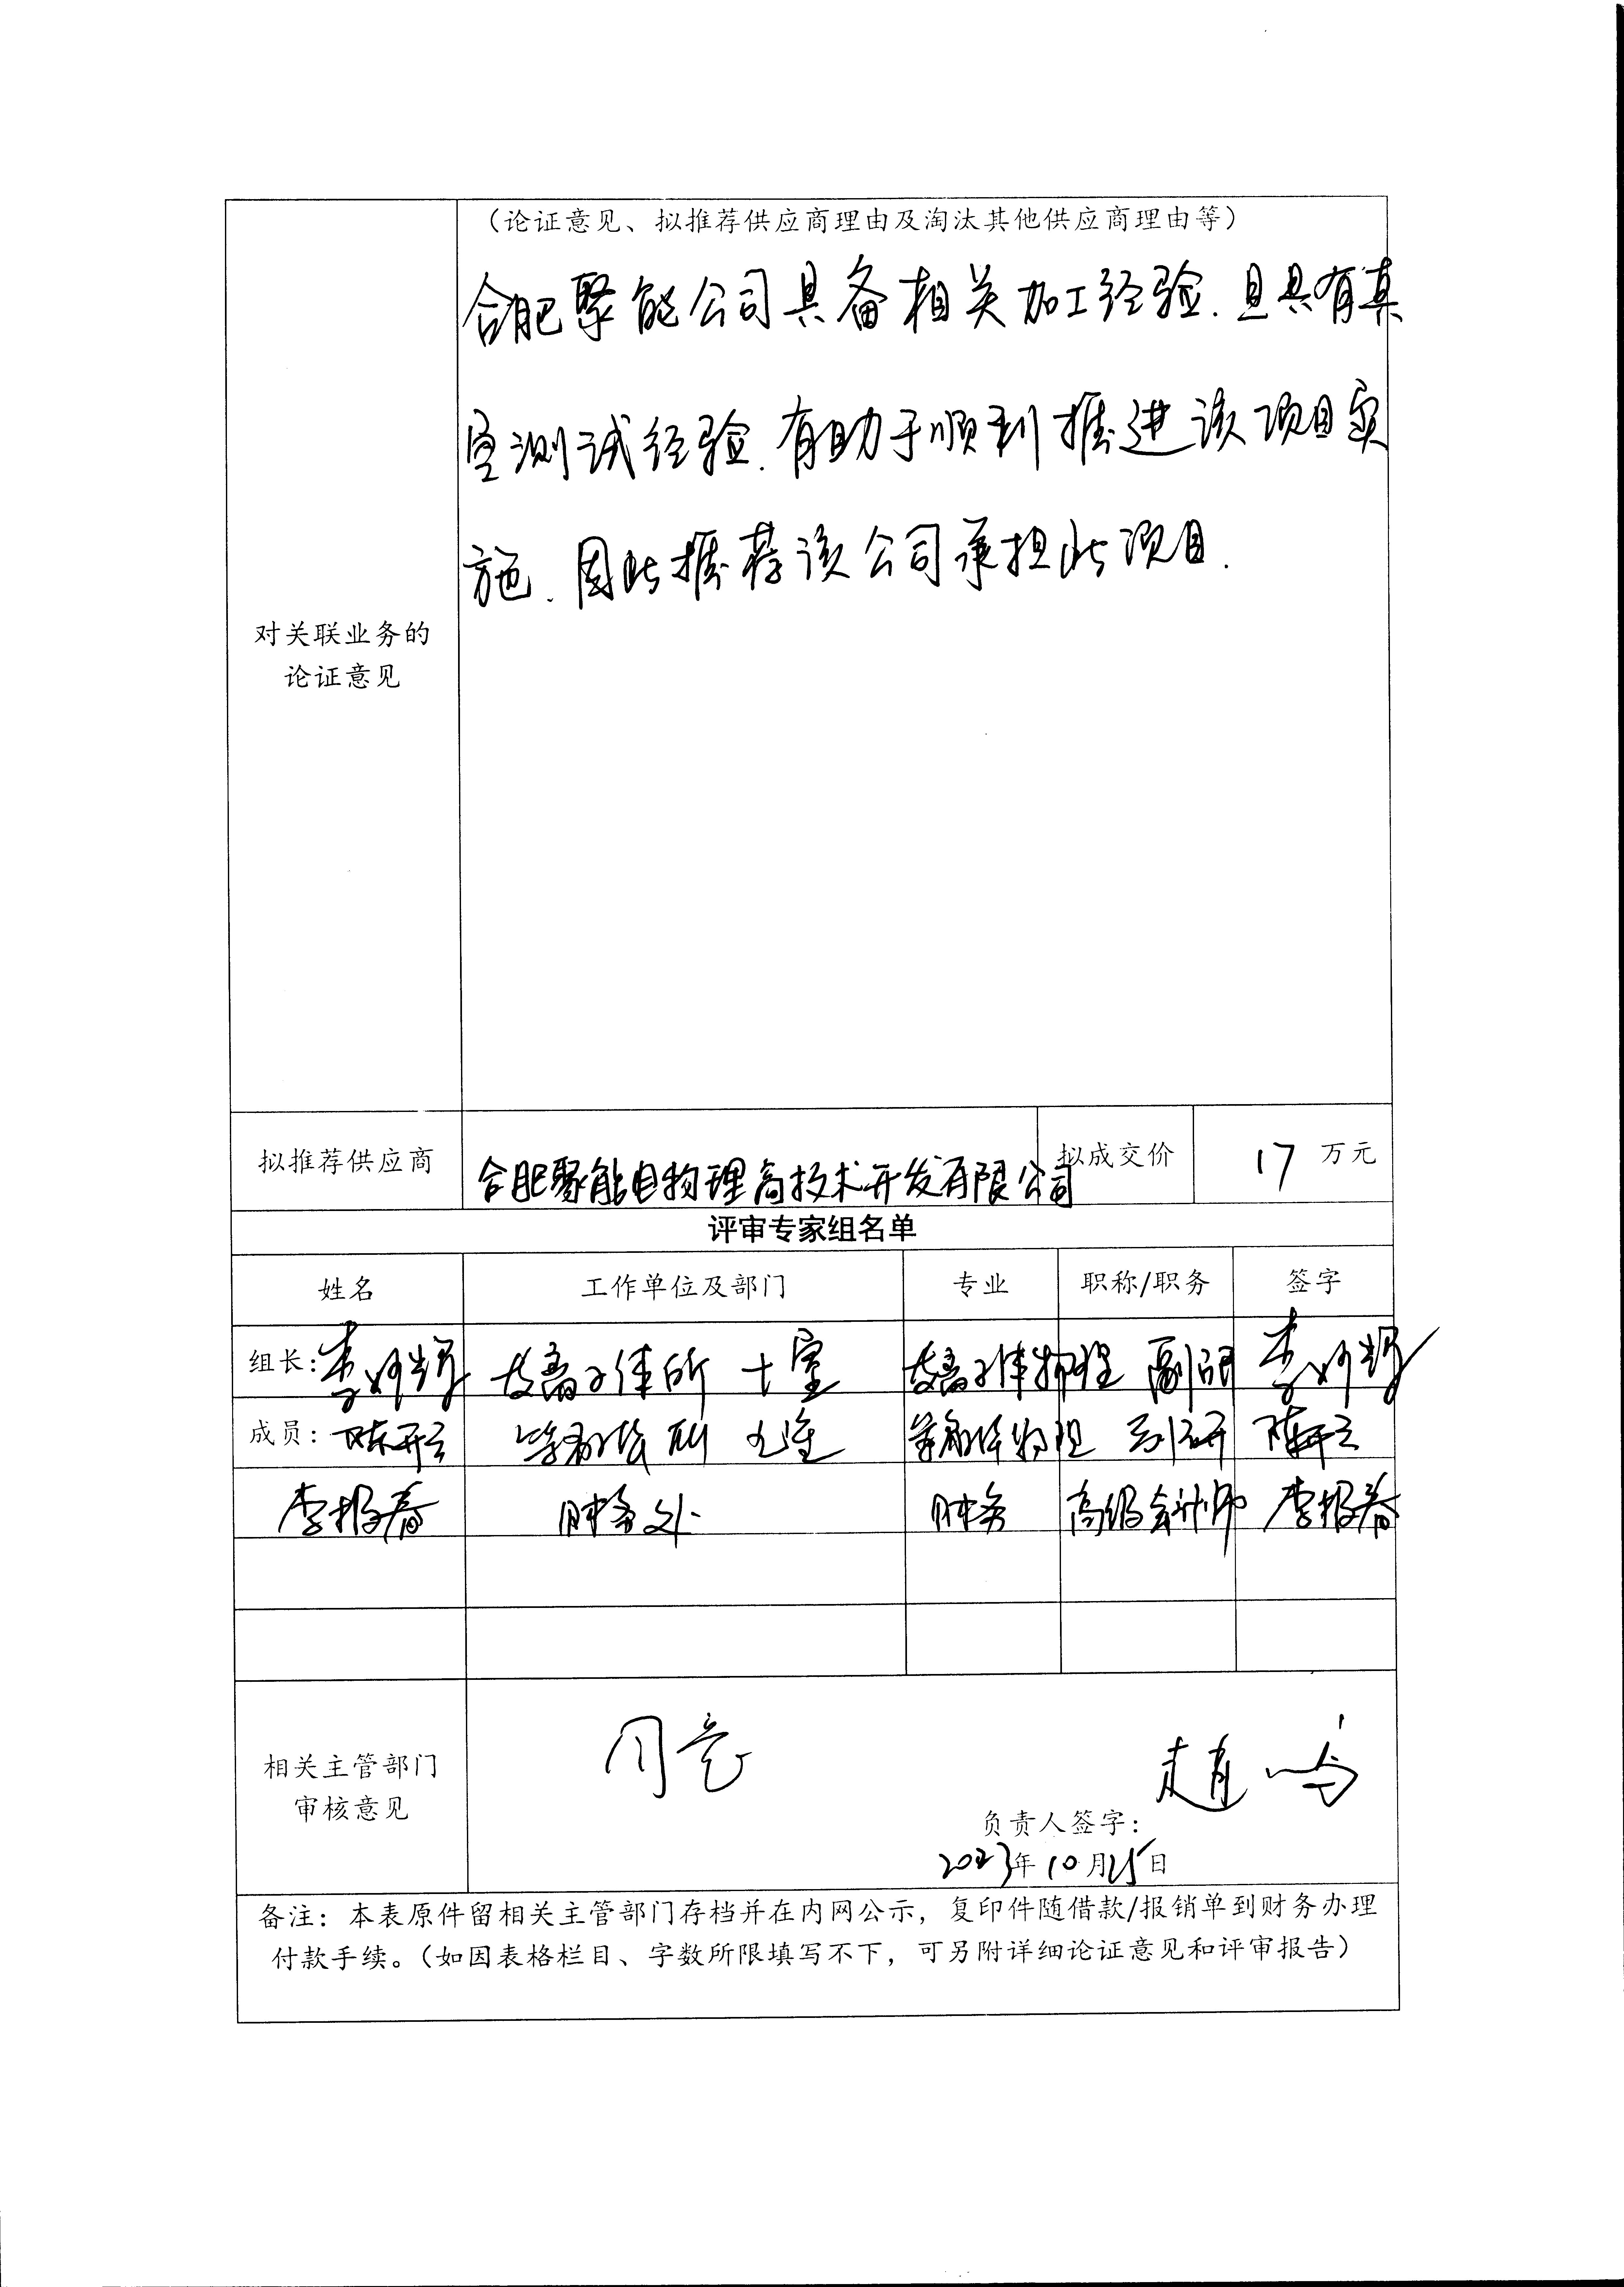 （论证意见、拟推荐供应商理由及淘汰其他供应商理由等）
合肥聚能公司具备相关加工经验.且具有真
空测试经验.有助于顺利推进该项目实
施.因此推荐该公司承担此项目.
对关联业务的
论证意见
拟推荐供应商 合肥聚能电物理高技术开发有限公司 拟成交价 17 万元
评审专家组名单
姓名 工作单位及部门 专业 职称/职务 签字
组长: 等离子体所 十室 等离子体物理 副研
成员: 陈开云 等离子体所 九室 等离子体物理 副研 陈开云
李报春 财务处 财务 高级会计师 李报春
相关主管部门
审核意见
同意
负责人签字:
2023年10月25日
备注：本表原件留相关主管部门存档并在内网公示，复印件随借款/报销单到财务办理
付款手续。（如因表格栏目、字数所限填写不下，可另附详细论证意见和评审报告）